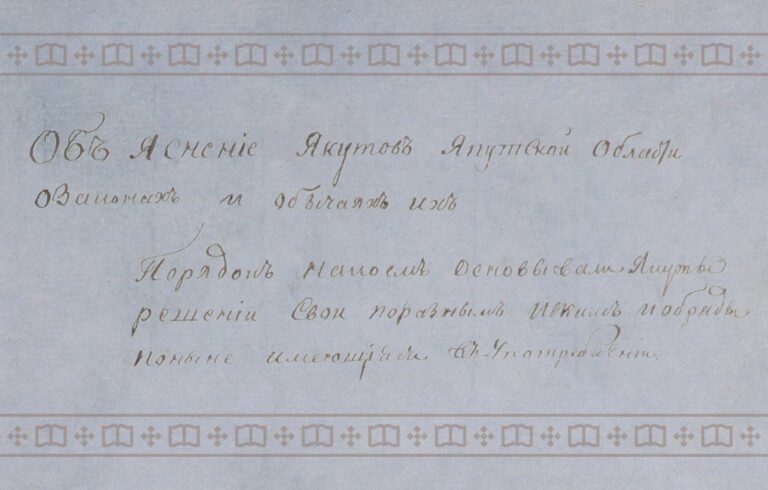 ОбЪ Ясненіе Якутовъ Якутской Области
о Законахъ и обычаяхъ ихъ
Порядокъ накоемъ основывали Якуты
решении Свои поразнымъ Искамъ и обряды
поныне имеющияся въ Употреблении.